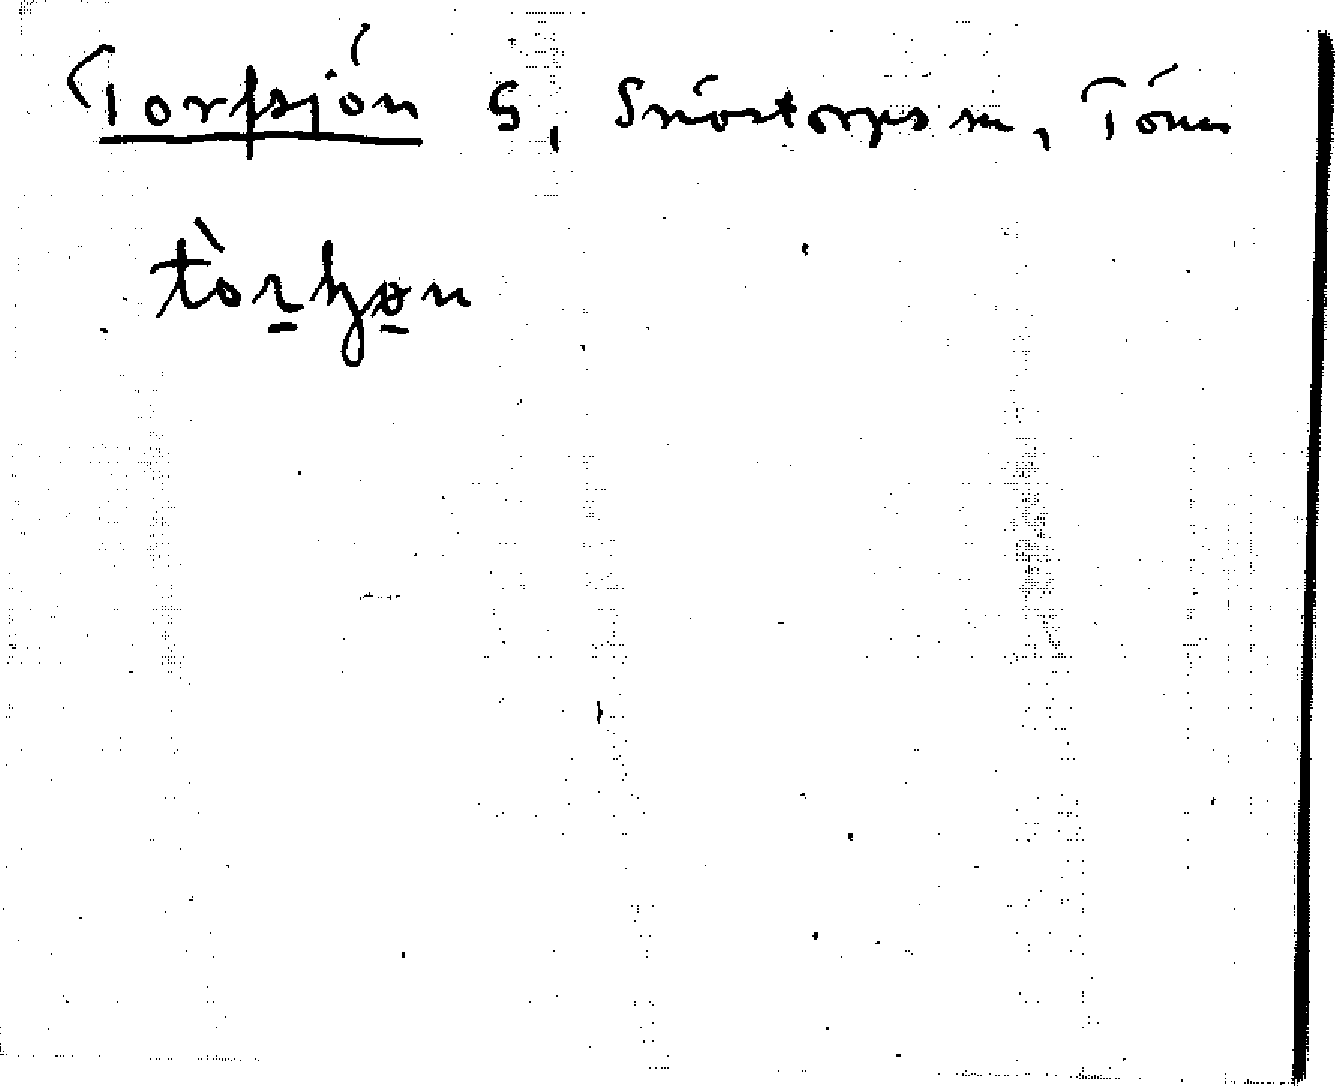 Torpsjön S, Snöstorps sn, Tönn
tòrḫøn